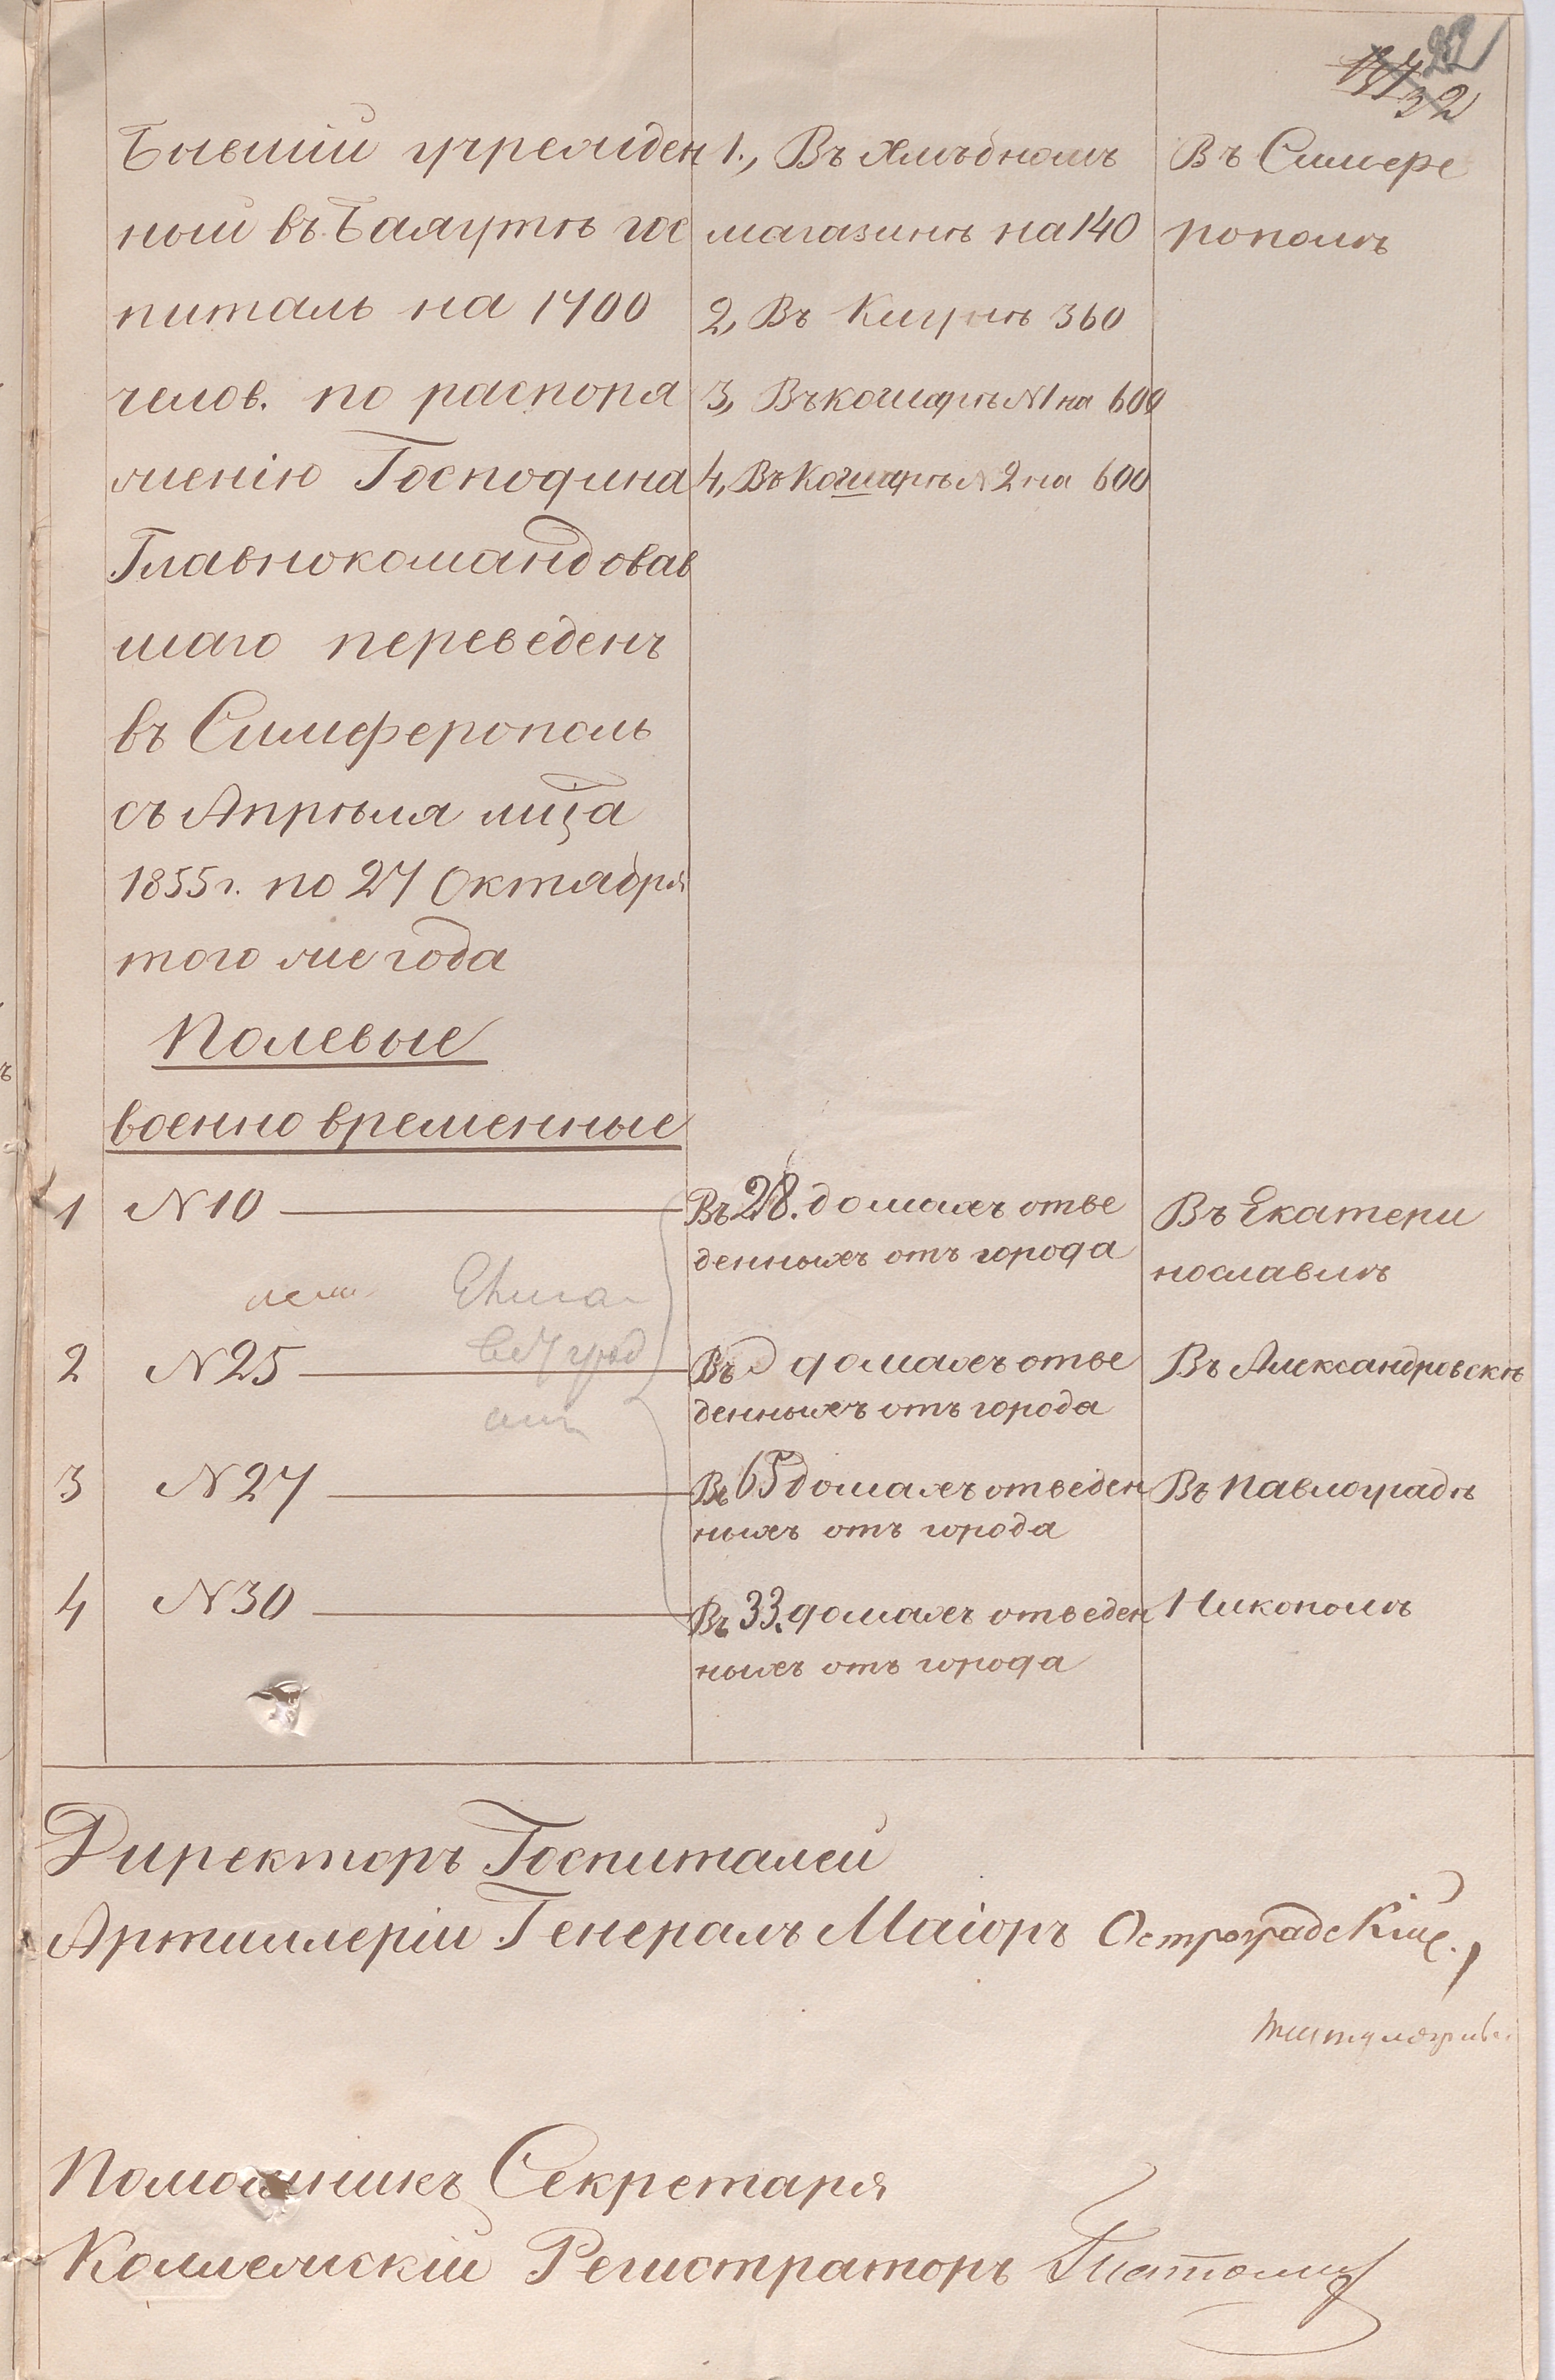 32
Бывшій учрежден
ный въ Баяутѣ гос
питаль на 1700
челов. по распоря
женію Господина
Главнокомандовав
шаго переведенъ
въ Симферополь
съ Апрѣля мѣца
1855 г. по 27 Октября
того же года
1., Въ Хлѣбномъ
магазинѣ на 140
2, Въ 360
3, Въ кошарѣ N1 на 600
4, Въ Кошарѣ N 2 на 600
Въ Симфере
рополѣ
Полевые
военно временные
1 N 10 Въ 28. домахъ отве
денныхъ отъ города
Въ Екатери
нославлѣ
2 N 25 Въ домахъ отве
денныхъ отъ города
Въ Александровскѣ
3 N 27 Въ 65 домахъ отведен
ныхъ отъ города
Въ Павлоградѣ
4 N 30 Въ 33. домахъ отведен
ныхъ отъ города
Никополѣ
Директоръ Госпиталей
Артиллеріи Генералъ Маіоръ Остроградскій.
Помощникъ Секретаря
Коллежскій Регистраторъ